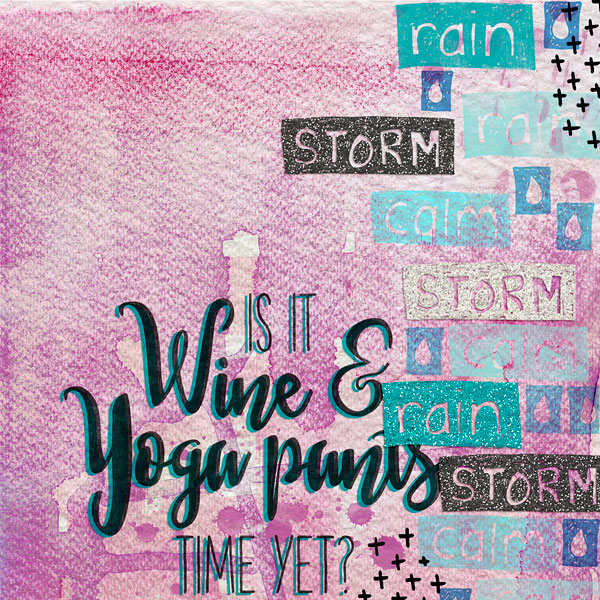 rain
rain
STORM
calm
STORM
IS IT
calm
Wine &
rain
Yoga pants
STORM
calm
TIME YET?